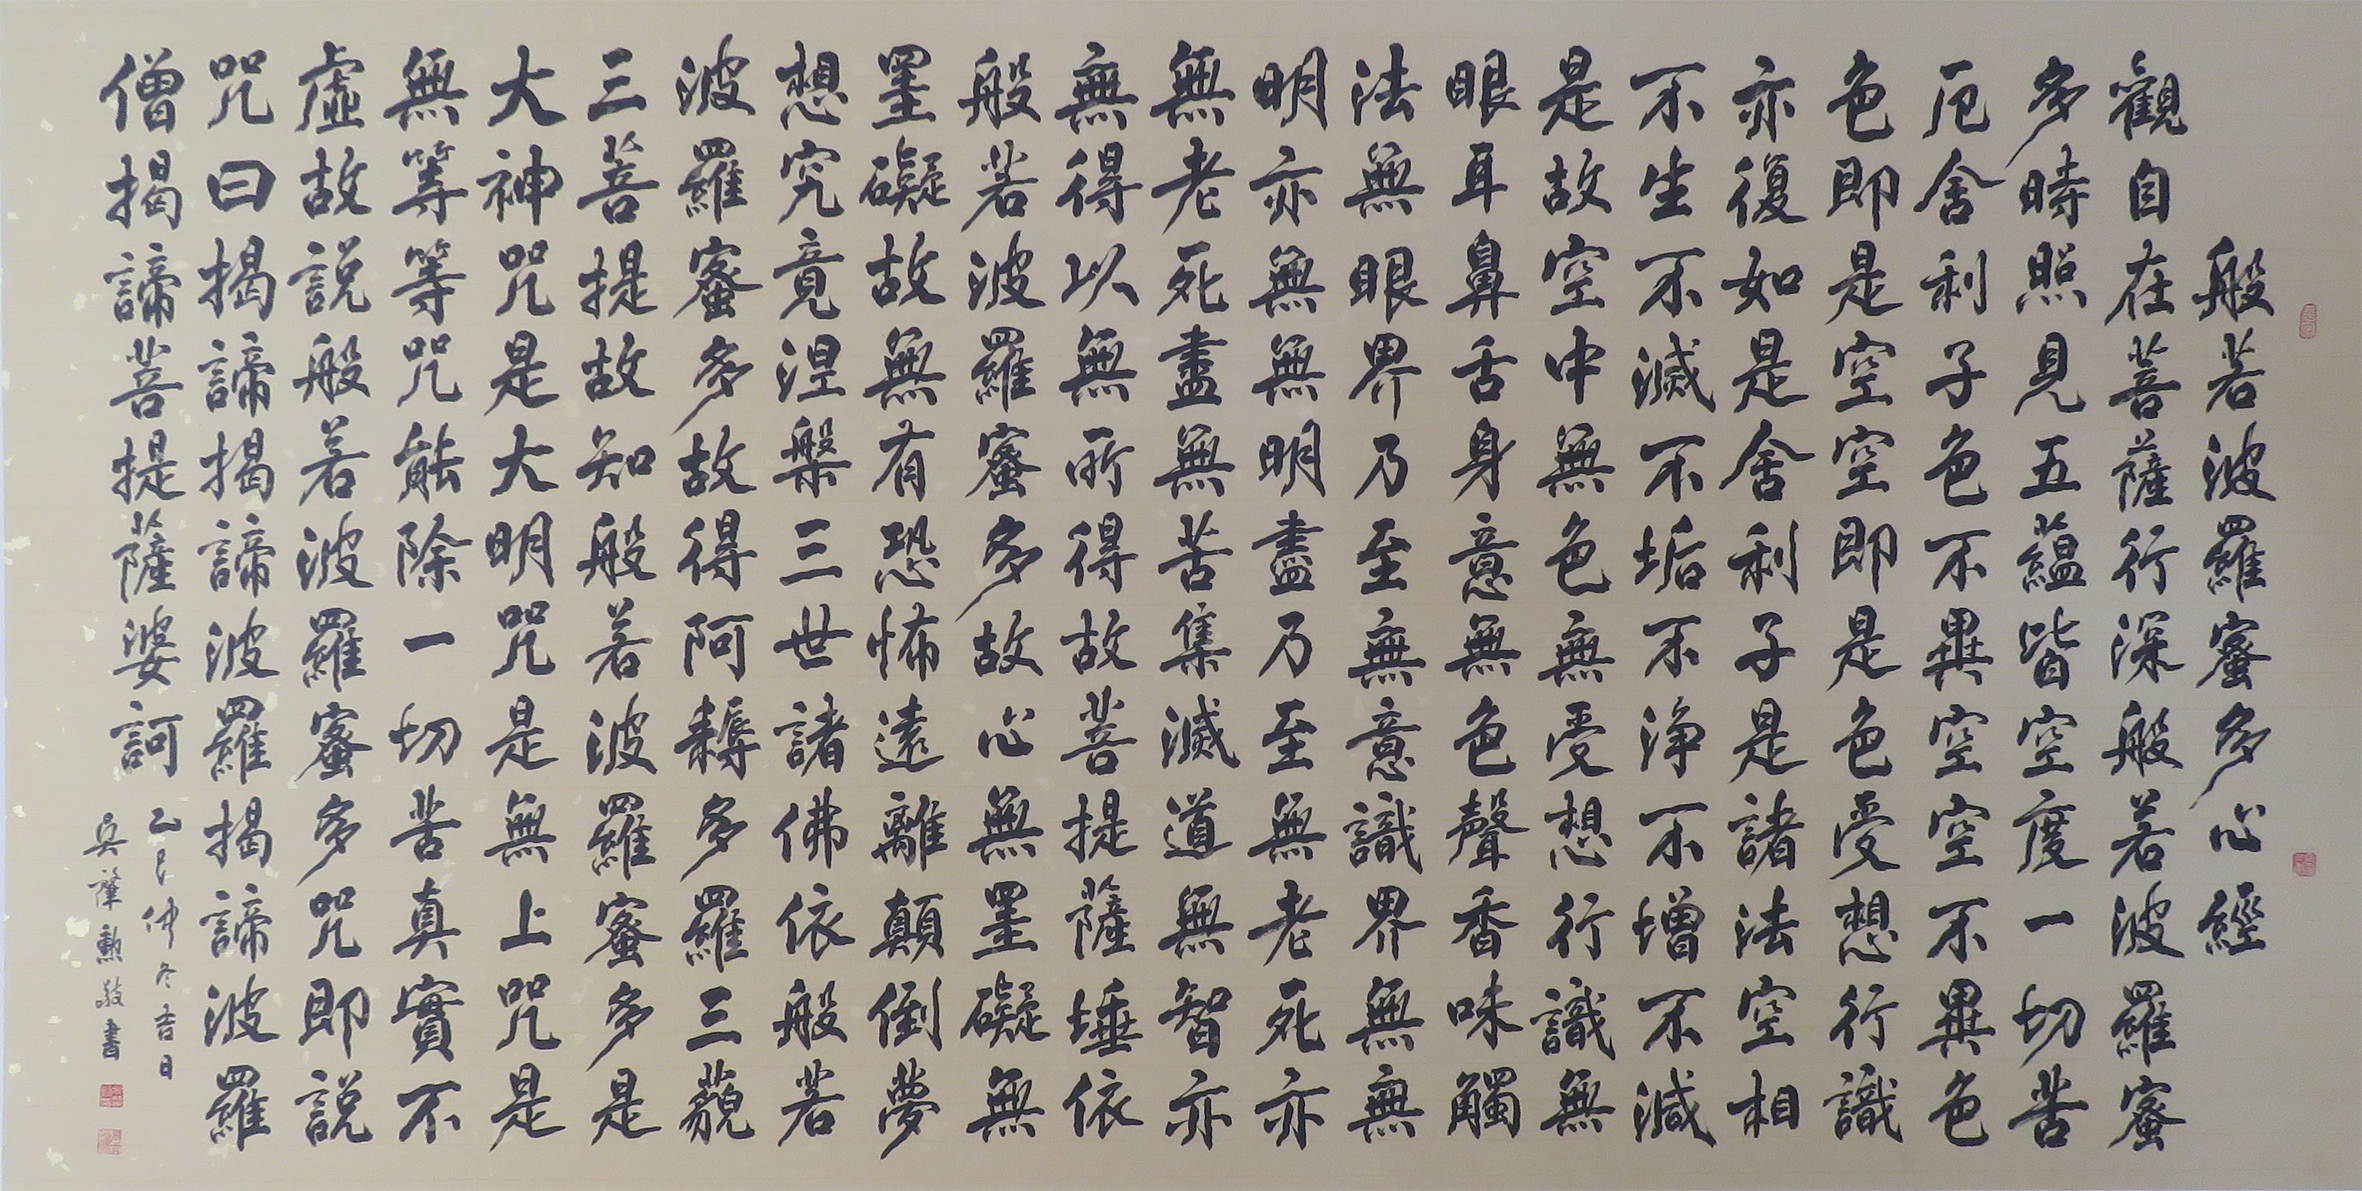 般若波羅蜜多心經
觀自在菩薩行深般若波羅蜜
多時照見五蘊皆空度一切苦
厄舍利子色不異空空不異色
色即是空空即是色受想行識
亦復如是舍利子是諸法空相
不生不滅不垢不淨不增不減
是故空中無色無受想行識無
眼耳鼻舌身意無色聲香味觸
法無眼界乃至無意識界無無
明亦無無明盡乃至無老死亦
無老死盡無苦集滅道無智亦
無得以無所得故菩提薩埵依
般若波羅蜜多故心無罣礙無
罣礙故無有恐怖遠離顛倒夢
想究竟涅槃三世諸佛依般若
波羅蜜多故得阿耨多羅三藐
三菩提故知般若波羅蜜多是
大神咒是大明咒是無上咒是
無等等咒能除一切苦真實不
虛故說般若波羅蜜多咒即說
咒曰揭諦揭諦波羅揭諦波羅
僧揭諦菩提薩婆訶
乙巳仲冬吉日
吳肇勳敬書